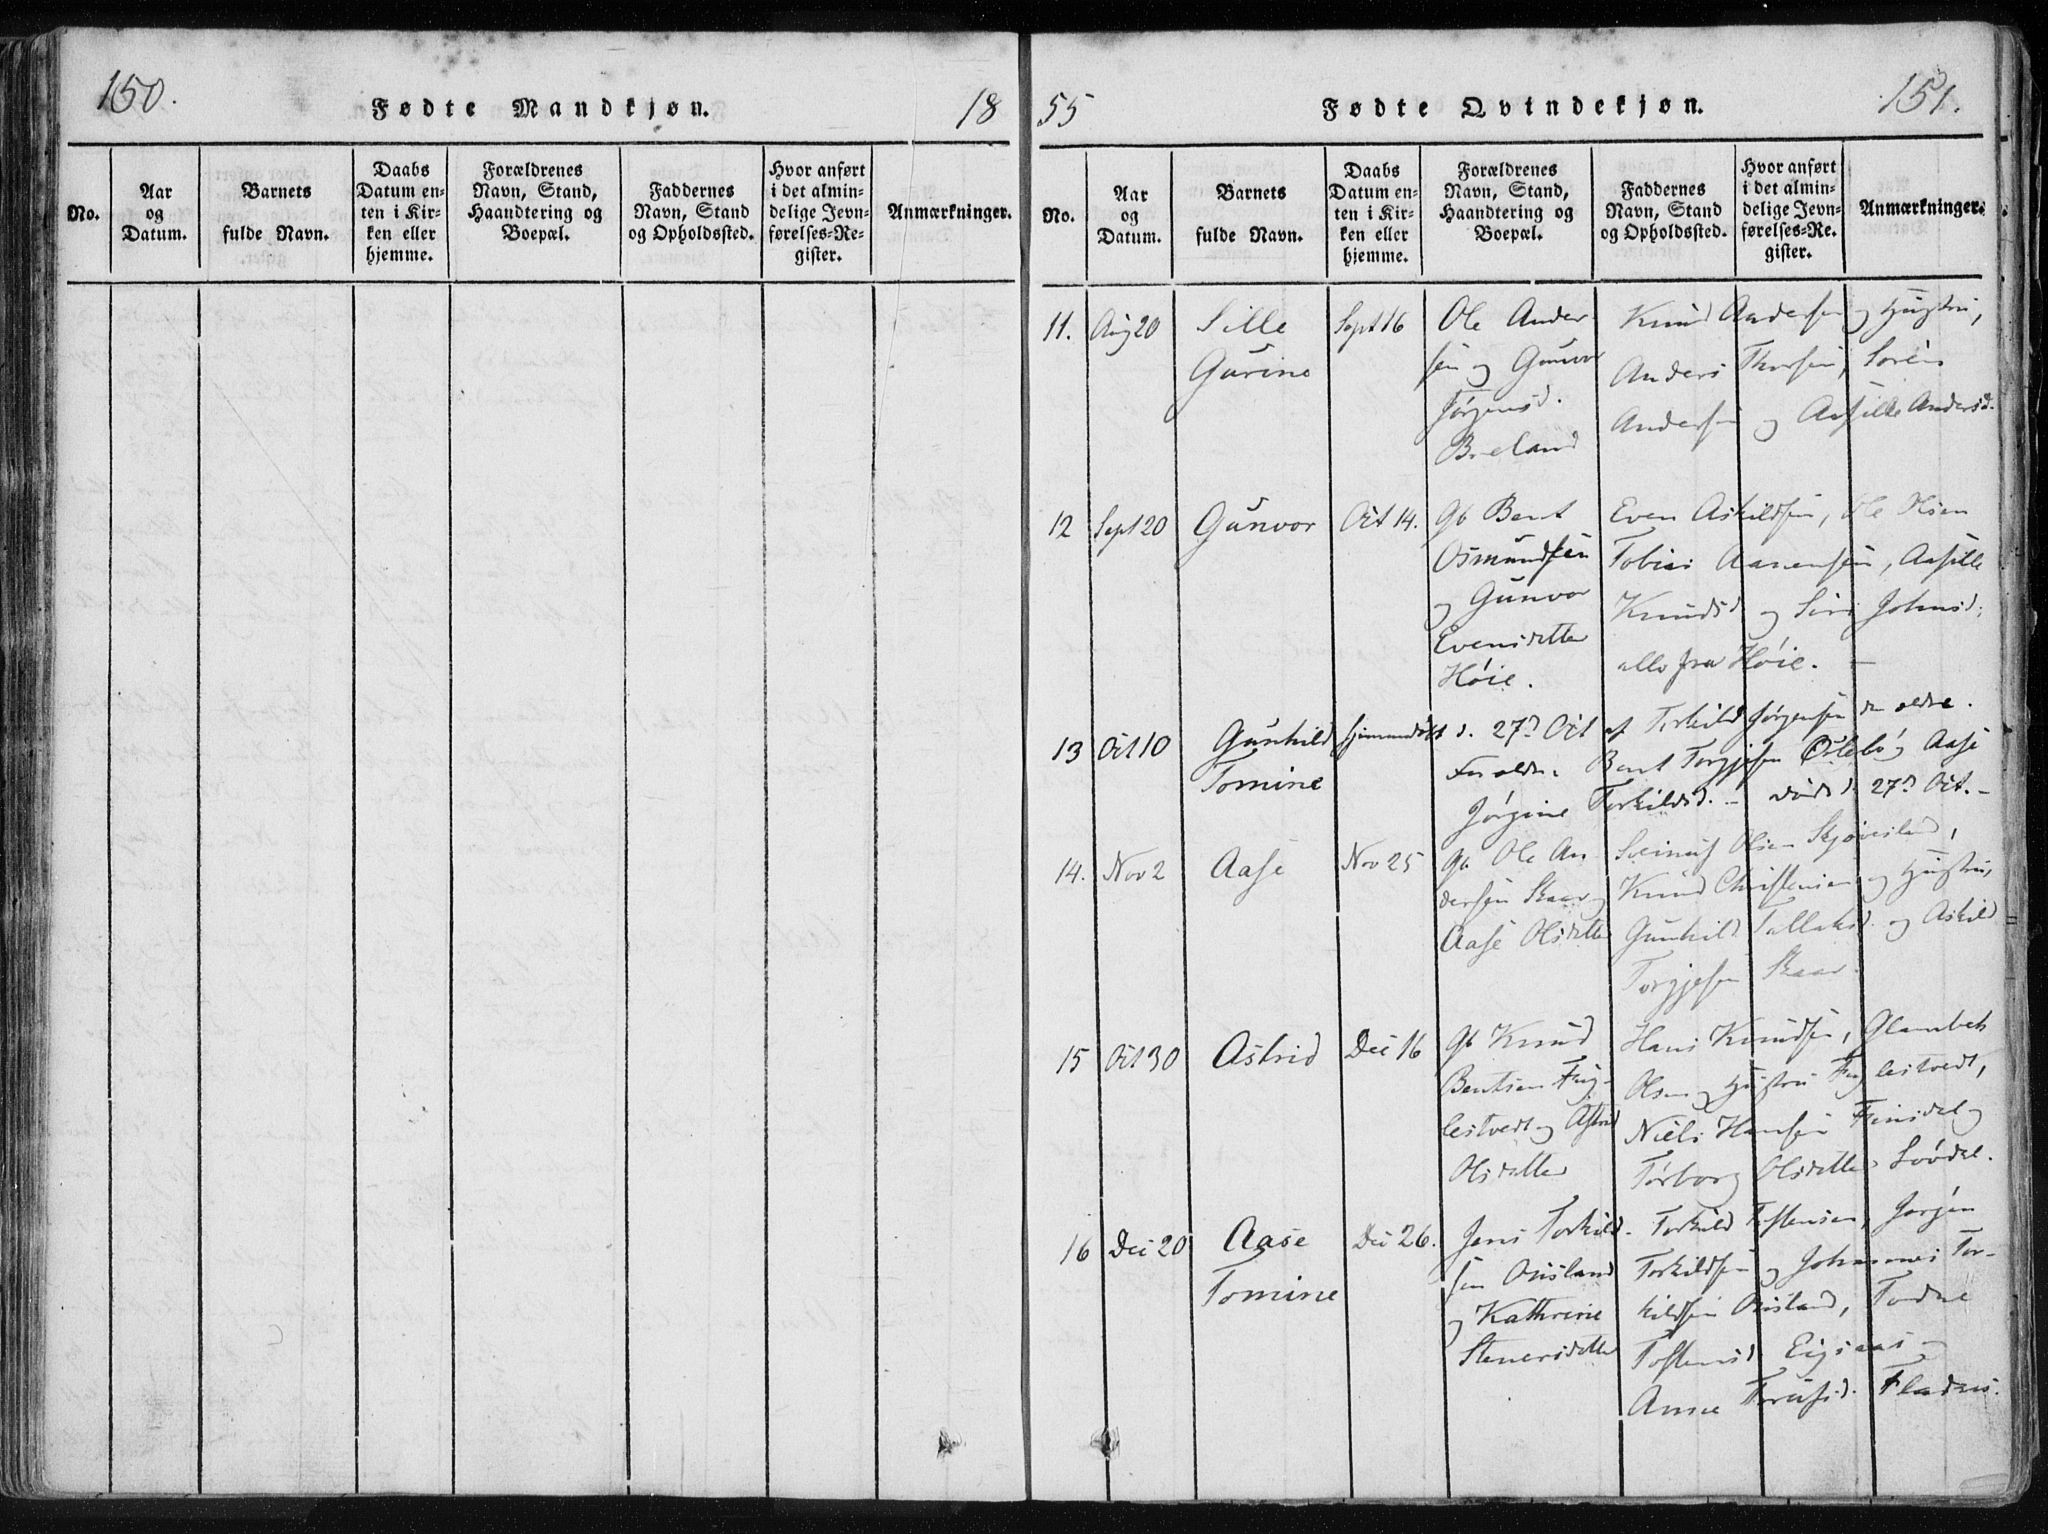 150.
Fødte Mandkjøn.
18
No.
Aar
og
Datum.
Barnets
fulde Navn.
Daabs
Datum en-
ten i Kir-
ken eller
hjemme.
Forældrenes
Navn, Stand,
Haandtering og
Boepæl.
Faddernes
Navn, Stand
og Opholdssted.
Hvor anført
i det almin-
delige Jevn-
førelses-Re-
gister.
Anmærkninger.
55
Fødte Qvindekjøn.
151.
No.
Aar
og
Datum.
Barnets
fulde Navn.
Daabs
Datum en-
ten i Kir-
ken eller
hjemme.
Forældrenes
Navn, Stand,
Haandtering og
Boepæl.
Faddernes
Navn, Stand
og Opholdssted.
Hvor anført
i det almin-
delige Jevn-
førelses-Re-
gister.
Anmærkninger.
11.
Aug 20
Sille
Gurine
Sept 16
Ole Ander
sen og Gunvor
Jørgensd.
Breland
Knud Andersen og Hustru,
Anders Thorsen, Søren
Andersen og Aasille Andersd.
12
Sept 20
Gunvor
Oct 14.
Gb Bent
Osmundsen
og Gunvor
Evensdatter
Høie.
Even Askildsen, Ole Olsen
Tobias Aanensen, Aasille
Knudsd og Siri Johnsd.
alle fra Høie. —
13
Oct 10
Gunhild
Tomine
hjemmedøbt d. 27d Oct af Torkild Jørgensen den ældre.
Forældre Bent Torgjesen Øilebö og Aase
Jørgine Torkildsd. — død d. 27d Oct. —
14.
Nov 2
Aase
Nov 25
Gb Ole An
dersen Skaar og
Aase Olsdatter
Olsen
Knud Christensen og Hustru,
Gunhild Tallaksd. og Askild
Torgjesen Skaar.
15
Oct 30
Astrid
Dec 16
Gb Knud
Bentsen Fug-
lestvedt og Astrid
Olsdatter
Hans Knudsen, Glambek
Olsen og Hustru Fuglestvedt,
Niels Hansen Finsdal og
Torborg Olsdatter Lövdal.
16
Dec 20
Aase
Tomine
Dec 26.
Jens Torkild-
sen Ousland
og Kathrine
Stenersdatter
Torkild Toftensen, Jørgen
Torkildsen og Johannes Tor-
kildsen Ousland, Tordne
Toftensd Eigsaas og
Anne Truesd. Fladnes.